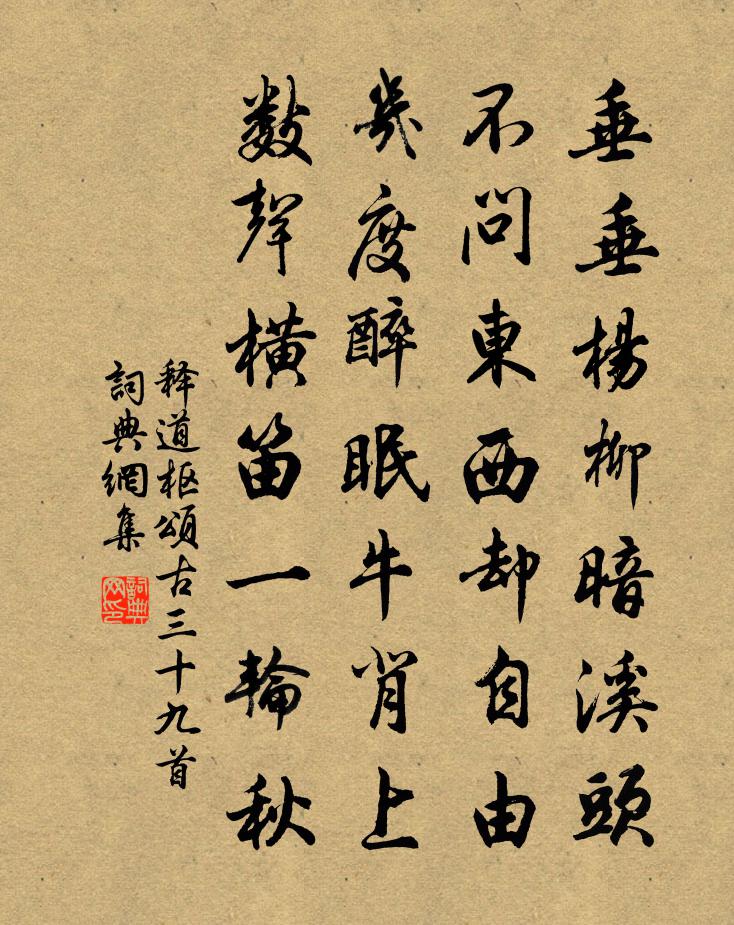 垂垂楊柳暗溪頭
不問東西却自由
幾度醉眠牛背上
數聲橫笛一輪秋
释道枢頌古三十九首
詞典網集
詞典網印